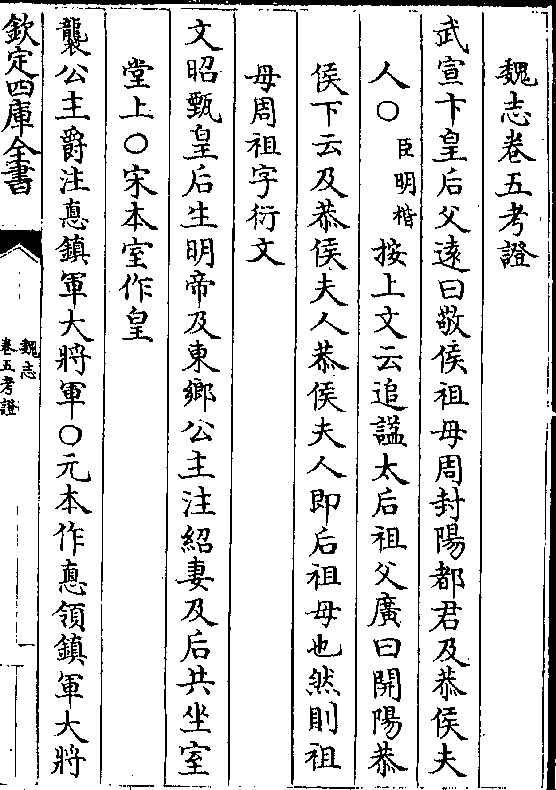 魏志卷五考證
武宣卞皇后父遠曰敬侯祖母周封陽都君及恭侯夫
人○臣明楷按上文云追諡太后祖父廣曰開陽恭
侯下云及恭侯夫人恭侯夫人即后祖母也然則祖
母周祖字衍文
文昭甄皇后生明帝及東鄉公主注紹妻及后共坐室
堂上○宋本室作皇
襲公主爵注悳鎮軍大將軍○元本作悳領鎮軍大將
欽定四庫全書
魏志
卷五考證